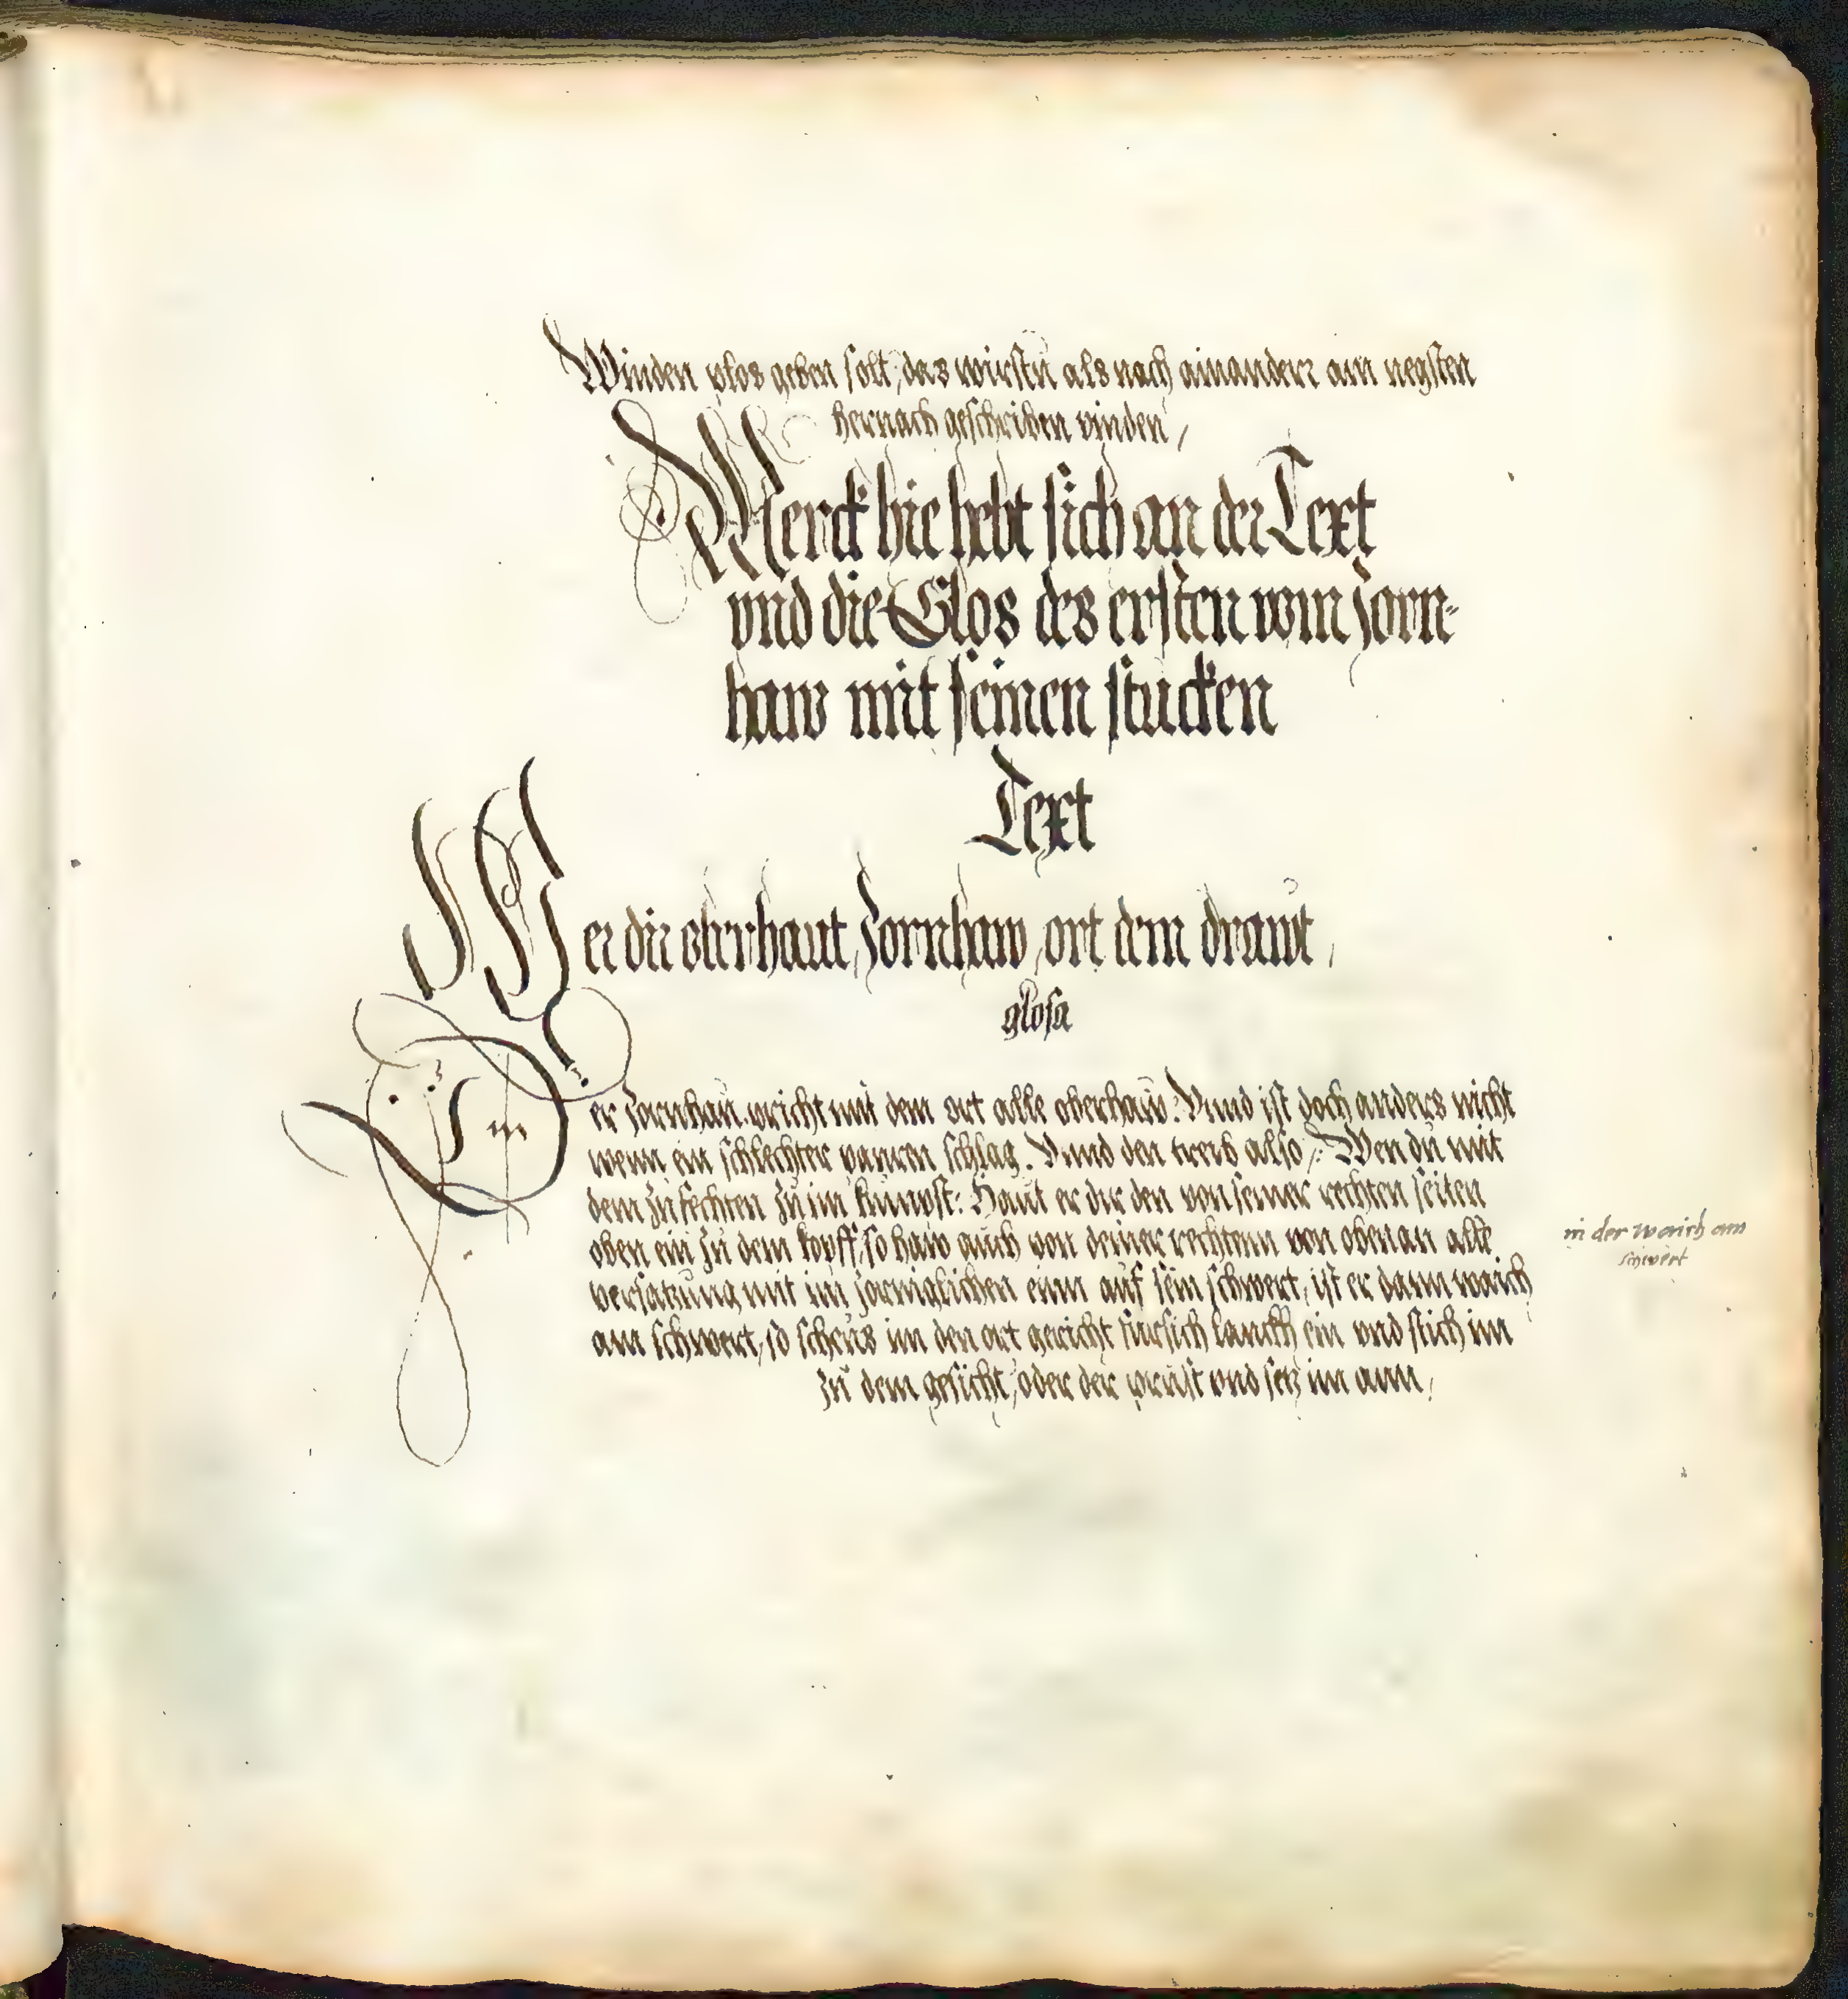 Winden plos geben solt, das wirstu als nach ainander am negsten
hernach geschriben vinden,
Merck hie hebt sich an der Text
vnd die Glos des ersten vom zorn-
haw mit seinen stucken
Text
Wer dir oberhaut, zornhaw, ort dem drawt,
glosa
Der zornhau pricht mit dem ort alle oberhaw. Vnnd ist doch anders nicht
wenn ein schlechter paurn schlag. Vnnd den treib also, Wen du mit
dem zufechten zu im kumpst: Haut er dir den von seiner rechten seiten
oben ein zu dem kopff, so haw auch von deiner rechtenn von oben an alle
versatzung mit im zorniglichen einn auf sein schwert, ist er dann waich
am schwert, so scheus im den ort gericht fursich lanckh ein vnd stich im
zu dem gesicht, oder der prust vnd setz im ann,
in der waich am
schwert